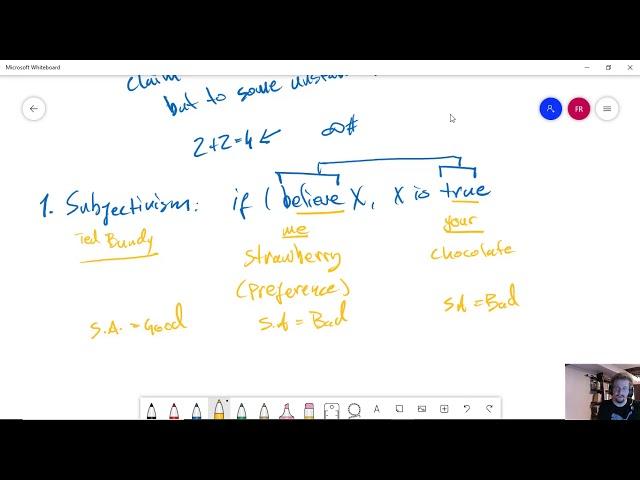 Microsoft Whiteboard
FR
claim
but to some
2+2=4 ∞#
1. Subjectivism: if I believe X, X is true
Ted Bundy me your
Strawberry chocolate
(Preference)
S.A. = Good S.A = Bad S.A = Bad
A